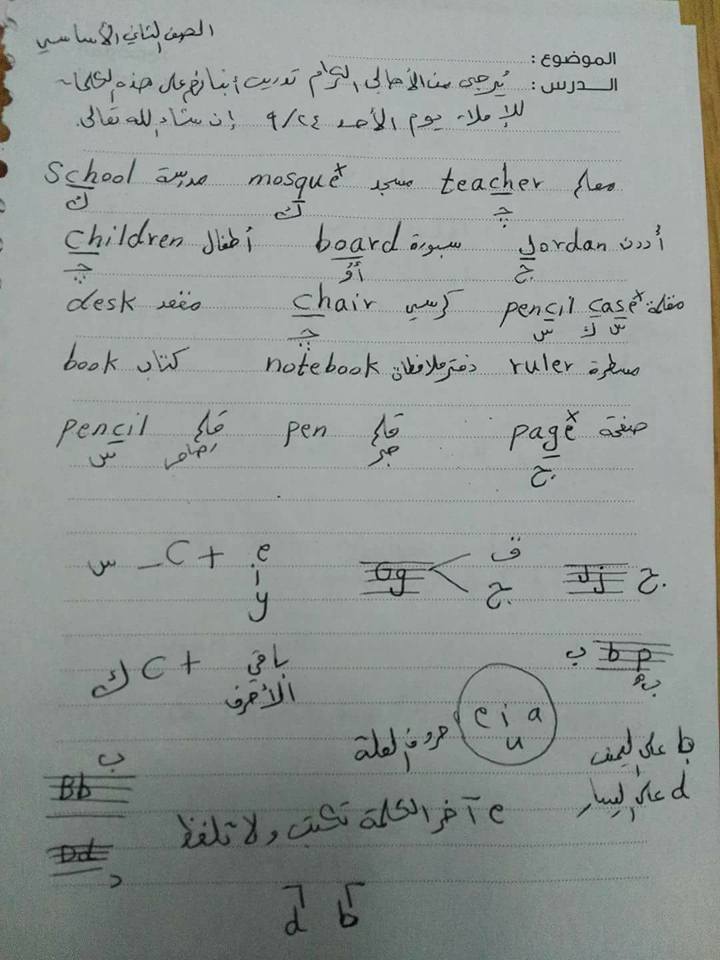 الصف الثاني الأساسي
الموضوع:
الدرس: يُرجى من الأهالي الكرام تدريب أبنائهم على هذه الكلمات
للإملاء يوم الأحد 9/24 إن شاء الله تعالى.
School مدرسة mosque مسجد teacher معلم
ك ك چ
children أطفال board سبورة Jordan أردن
چ أوُ ج
desk مقعد chair كرسي pencil case مقلمة
چ س ك س
book كتاب notebook دفتر ملاحظات ruler مسطرة
pencil قلم pen قلم page صفحة
س رصاص حبر ج
س _ C + e i y
Gg ق ج
Jj ج
ك C + باقي الأحرف
b p ب
e i a u حروف العلة
b على اليمين
d على اليسار
ب
Bb
e آخر الكلمة تكتب ولا تلفظ
Dd
د
d b